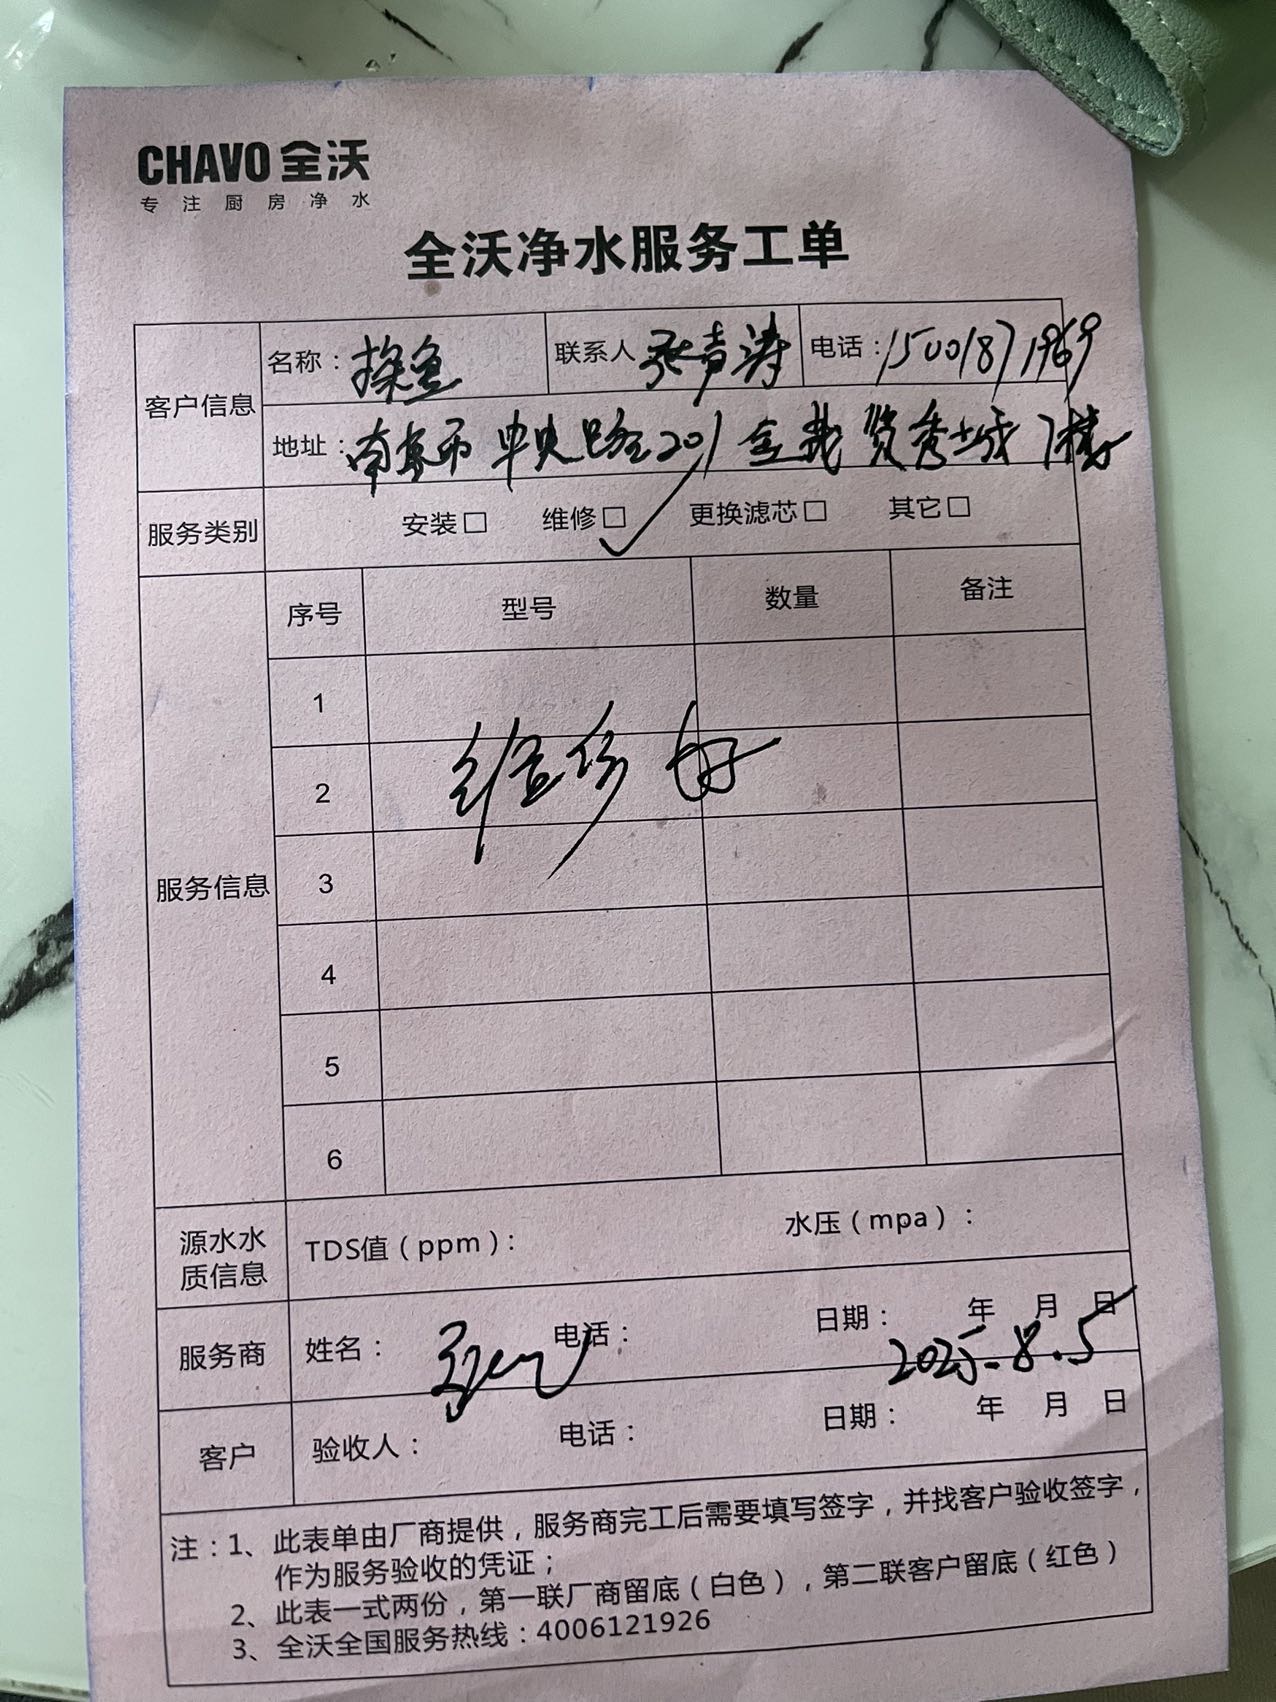 CHAVO 全沃
专注厨房净水
全沃净水服务工单
客户信息
名称：探鱼 联系人 张声涛 电话：15001871969
地址：南京市 中央路201 金茂览秀城 7楼
服务类别 安装□ 维修□✓ 更换滤芯□ 其它□
服务信息
序号 型号 数量 备注
1
2 维修好
3
4
5
6
源水水质信息 TDS值（ppm）： 水压（mpa）：
服务商 姓名： 电话： 日期： 年 月 日
2025.8.5
客户 验收人： 电话： 日期： 年 月 日
注：1、此表单由厂商提供，服务商完工后需要填写签字，并找客户验收签字，
作为服务验收的凭证；
2、此表一式两份，第一联厂商留底（白色），第二联客户留底（红色）
3、全沃全国服务热线：4006121926